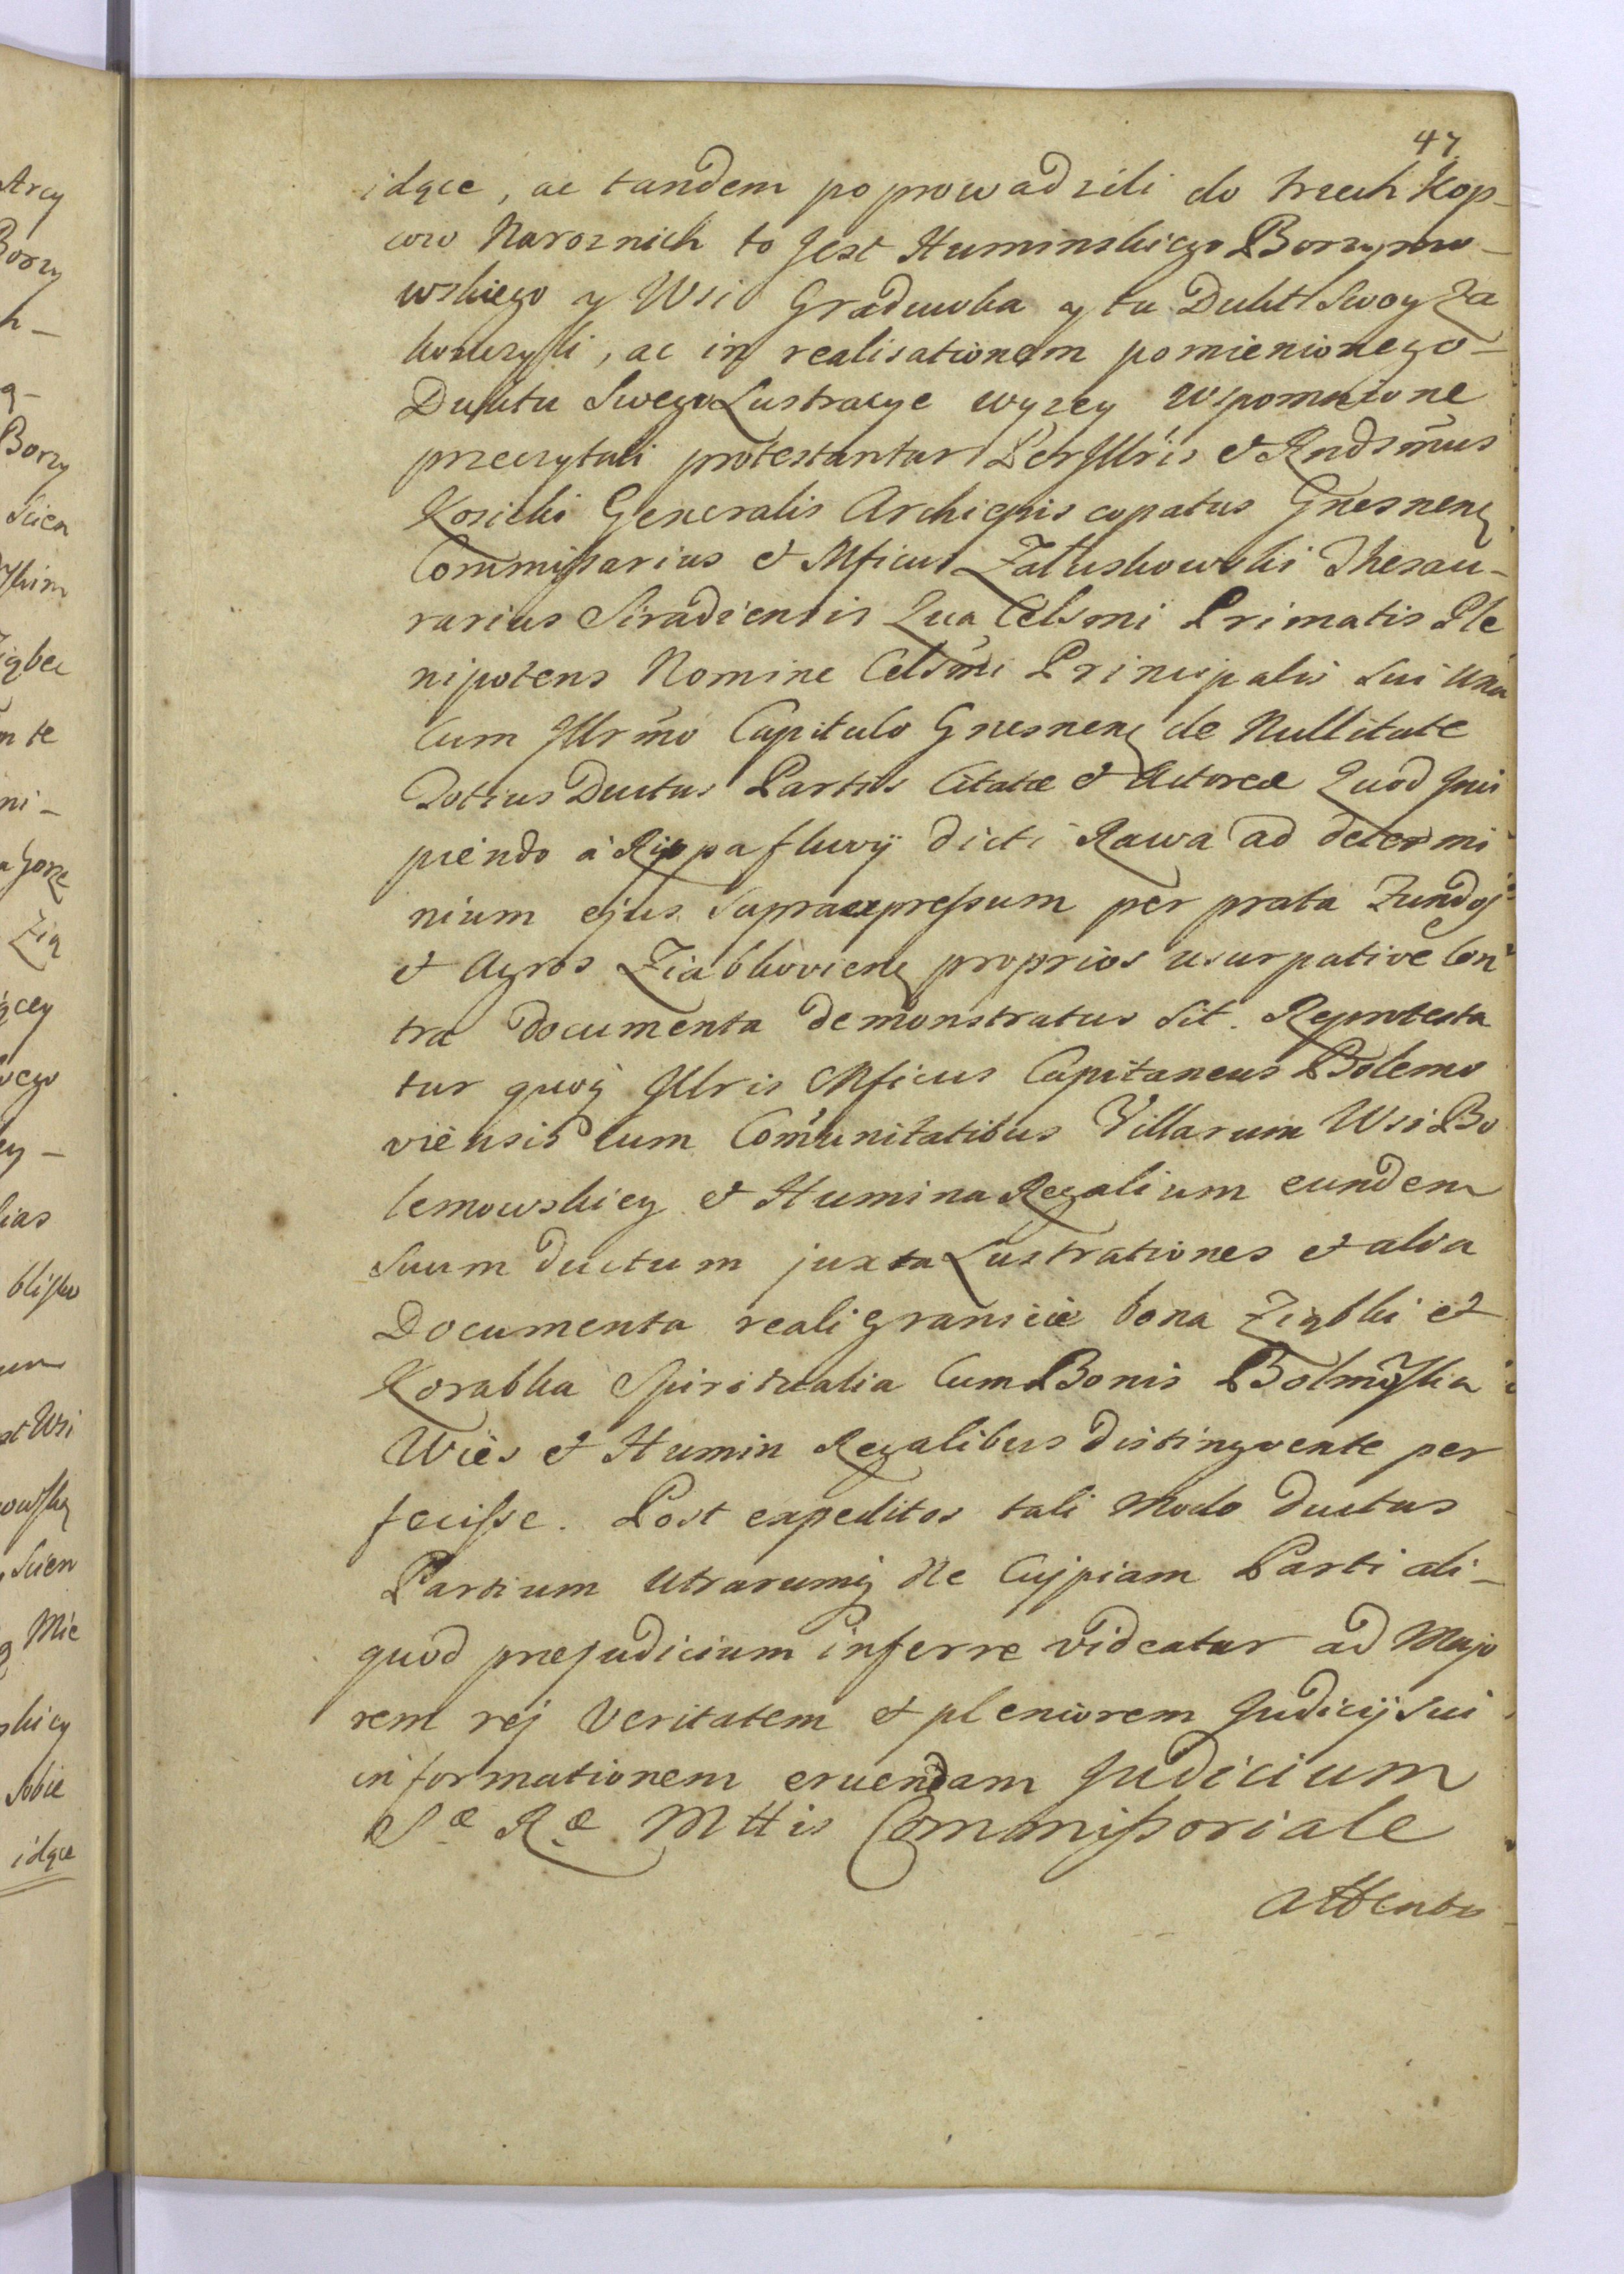 47
idące, ac tandem poprowadzili do trzech Kop-
cow Naroznich to Jest Huminskiego Borzymo-
wskiego y Wsi Gradowka y tu Dukt Swoy Za
konczyli, ac in realisationem pomienionego-
Duktu Swego Lustracye wyzey wspomnione
przeczytali protestantur PerJllris et Rndsmus
Kosicki Generalis Archiepis copatus Gnesnens
Commissarius et Mficus Załuskowski Thesau-
rarius Siradiensis Qua Celsmi Primatis Ple
nipotens Nomine Celsmi Principalis sui una
Cum Jllrmo Capitulo Gnesnens de Nullitate
Totius Ductus Partis Citatæ et Actoreæ Quod Jnci
piendo a Rippa fluvij dicti Rawa ad determi
nium ejus supraexpressum per prata Fundos
et Agros Ziabkoviens proprios usurpative Con
tra documenta demonstratus sit. Reprotesta
tur quoq Jllris Mficus Capitaneus Bolemo
viensis cum Comunitatibus Villarum Wsi Bo
lemowskiey et Humina Regalium eundem
Suum ductum juxta Lustrationes et alia
Documenta reali granicie bona Ziąbki et
Korabka Spiritualia Cum Bonis Bolmoska
Wies et Humin Regalibus distingvente per
fecisse. Post expeditos tali Modo ductus
Partium utrarumq Ne Cujpiam Parti ali-
quod præjudicium inferre videatur ad Majo
rem rej Veritatem et pleniorem Judicij sui
informationem eruendam Judicium
Sæ Ræ Mttis Commissoriale
attento